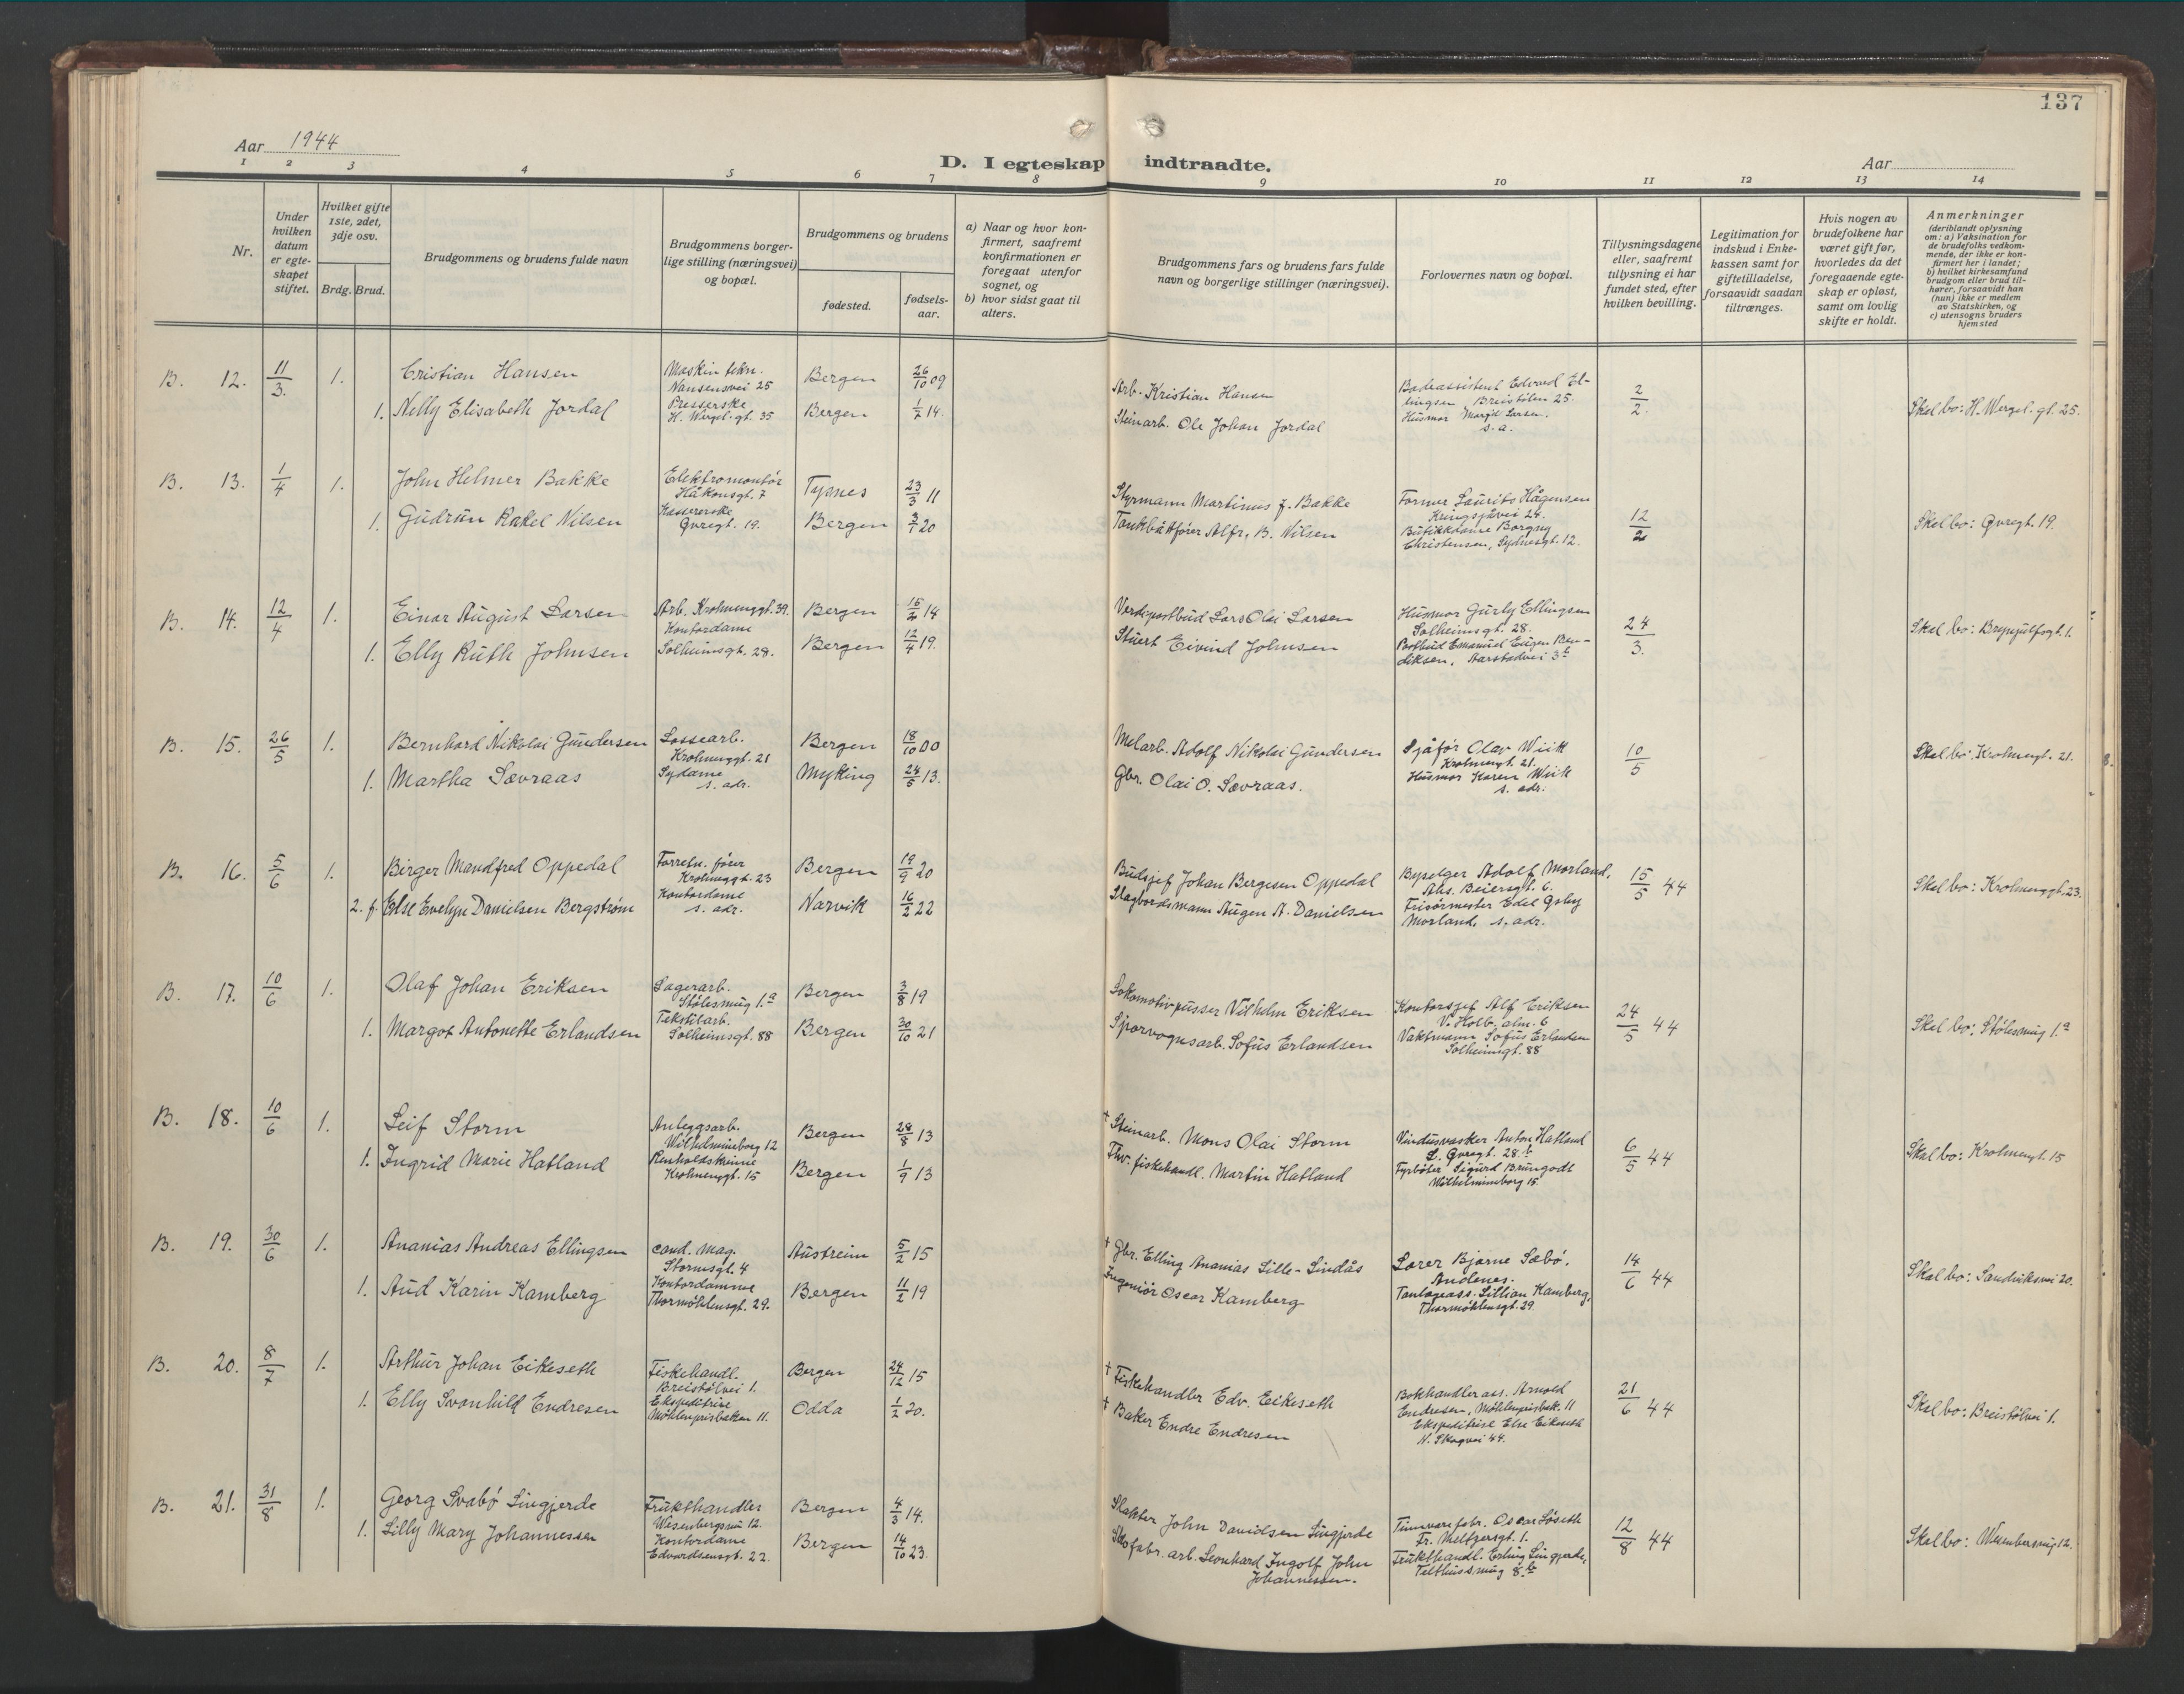 137
Aar 1944
D. I egteskap indtraadte.
Aar
1 2 3 4 5 6 7 8 9 10 11 12 13 14
Nr.
Under hvilken datum er egteskapet stiftet.
Hvilket gifte 1ste, 2det, 3dje osv.
Brdg. Brud.
Brudgommens og brudens fulde navn
Brudgommens borgerlige stilling (næringsvei) og bopæl.
Brudgommens og brudens
fødested.
fødselsaar.
a) Naar og hvor konfirmert, saafremt konfirmationen er foregaat utenfor sognet, og
b) hvor sidst gaat til alters.
Brudgommens fars og brudens fars fulde navn og borgerlige stillinger (næringsvei).
Forlovernes navn og bopæl.
Tillysningsdagene eller, saafremt tillysning ei har fundet sted, efter hvilken bevilling.
Legitimation for indskud i Enkekassen samt for giftetilladelse, forsaavidt saadan tiltrænges.
Hvis nogen av brudefolkene har været gift før, hvorledes da det foregaaende egteskap er opløst, samt om lovlig skifte er holdt.
Anmerkninger (deriblandt oplysning om: a) Vaksination for de brudefolks vedkommende, der ikke er konfirmert her i landet; b) hvilket kirkesamfund brudgom eller brud tilhører, forsaavidt han (hun) ikke er medlem av Statskirken, og c) utensogns bruders hjemsted
B. 12. 11/3. 1. Cristian Hansen Maskin tekn. Nansensvei 25 Bergen 26/10 09 Arb. Kristian Hansen Badeassistent Edvard Ellingsen Breistølen 25 2/2.
1. Nelly Elisabeth Jordal Presserske H. Wergel. gt. 35 Bergen 1/2 14. Steinarb. Ole Johan Jordal Husmor Margit Larsen. s. a. Skal bo: H. Wergel. gt. 25.
B. 13. 1/4 1. John Helmer Bakke Elektromontør Håkonsgt. 7 Tysnes 23/3 11 Styrmann Martinus J. Bakke Former Laurits Hågensen Kringsjåvei 24. 12/2
1. Gudrun Rakel Nilsen Kassererske Øvregt. 19. Bergen 3/7 20 Tankbåtfører Alfr. B. Nilsen Butikkdame Borgny Christensen, Sydnesgt. 12. Skal bo: Øvregt. 19.
B. 14. 12/4 1. Einar August Larsen Arb. Krohnenggt. 39. Bergen 15/2 14 Verdipostbud Lars Olai Larsen Husmor Gurly Ellingsen Solheimsgt. 28. 24/3.
1. Elly Ruth Johnsen Kontordame Solheimsgt. 28. Bergen 12/4 19. Stuert Eivind Johnsen Postbud Emanuel Eugen Bendiksen, Aarstadvei 3b Skal bo: Brynjulfsgt. 1.
B. 15. 26/5 1. Bernhard Nikolai Gundersen Lossearb. Krohnenggt. 21 Bergen 18/10 00 Melarb. Adolf Nikolai Gundersen Sjåfør Olav Wiik Krohnengt. 21. 10/5
1. Martha Sævraas Sydame s. adr. Myking 24/5 13. Gbr. Olai O. Sævraas. Husmor Karen Wiik s. adr. Skal bo: Krohnengt. 21.
B. 16. 5/6 1. Birger Mandfred Oppedal Forretn. fører Krohnenggt. 23 Bergen 19/9 20 Budsjef Johan Bergesen Oppedal Byselger Adolf Morland, Ahs. Beiersgt. 6. 15/5 44
2. f. Else Evelyn Danielsen Bergstrøm Kontordame s. adr. Narvik 16/2 22 Slagbordsmann Augen A. Danielsen Frisørmester Edel Morland, s. adr. Skal bo: Krohnenggt. 23.
B. 17. 10/6 1. Olaf Johan Eriksen Lagerarb. Stølesmug 1.a Bergen 3/8 19 Lokomotivpusser Vilhelm Eriksen Kontorsjef Alf Eriksen V. Holb. alm. 6 24/5 44
1. Margot Antonette Erlandsen Tekstilarb. Solheimsgt. 88 Bergen 30/10 21 Sporvognsarb. Sofus Erlandsen Vaktmann Sofus Erlandsen Solheimsgt. 88 Skal bo: Stølesmug 1.a
B. 18. 10/6 1. Leif Storm Anleggsarb. Wilhelmineborg 12 Bergen 28/8 13 † Steinarb. Mons Olai Storm Vindusvasker Anton Hatland L. Øvregt. 28.b 6/5 44
1. Ingrid Marie Hatland Renholdskvinne Krohnenggt. 15 Bergen 1/9 13 Fhv. fiskehandl. Martin Hatland Fyrbøter Sigurd Brungodt Wilhelmineborg 15. Skal bo: Krohnengt. 15
B. 19. 30/6 1. Ananias Andreas Ellingsen cand. mag. Stormsgt. 4 Austreim 5/2 15 † Gbr. Elling Ananias Lille-Lindås Lærer Bjarne Sæbø, Andenes. 14/6 44
1. Aud Karin Kamberg Kontordamme Thormøhlensgt. 29. Bergen 11/2 19 Ingeniør Oscar Kamberg Tanlægeass. Lillian Kamberg, Thormøhlensgt. 29. Skal bo: Sandviksvei 20.
B. 20. 8/7 1. Arthur Johan Eikeseth Fiskehandl. Breistølvei 1. Bergen 24/12 15 † Fiskehandler Edv. Eikeseth Bokhandlerass. Arnold Endresen, Møhlenprisbak. 11 21/6 44
1. Elly Svanhild Endresen Ekspeditrise Møhlenprisbakken 11. Odda 1/2 20. † Baker Endre Endresen Ekspeditrise Else Eikeseth N. Skogvei 44. Skal bo: Breistølvei 1.
B. 21. 31/8 1. Georg Svabø Lingjerde Frukthandler Wesenbergsmu 12. Bergen 4/3 14. Slakter John Davidsen Lingjerde Tinnvarefabr. Oscar Løseth Fr. Meltzersgt. 1. 12/8 44
1. Lilly Mary Johannessen Kontordame Edvardsensgt. 22. Bergen 14/10 23. Skofabr. arb. Leonhard Ingolf John Johannessen. Frukthandl. Erling Lingjerde, Telthussmug 8.b Skal bo: Wesenbersmug 12.